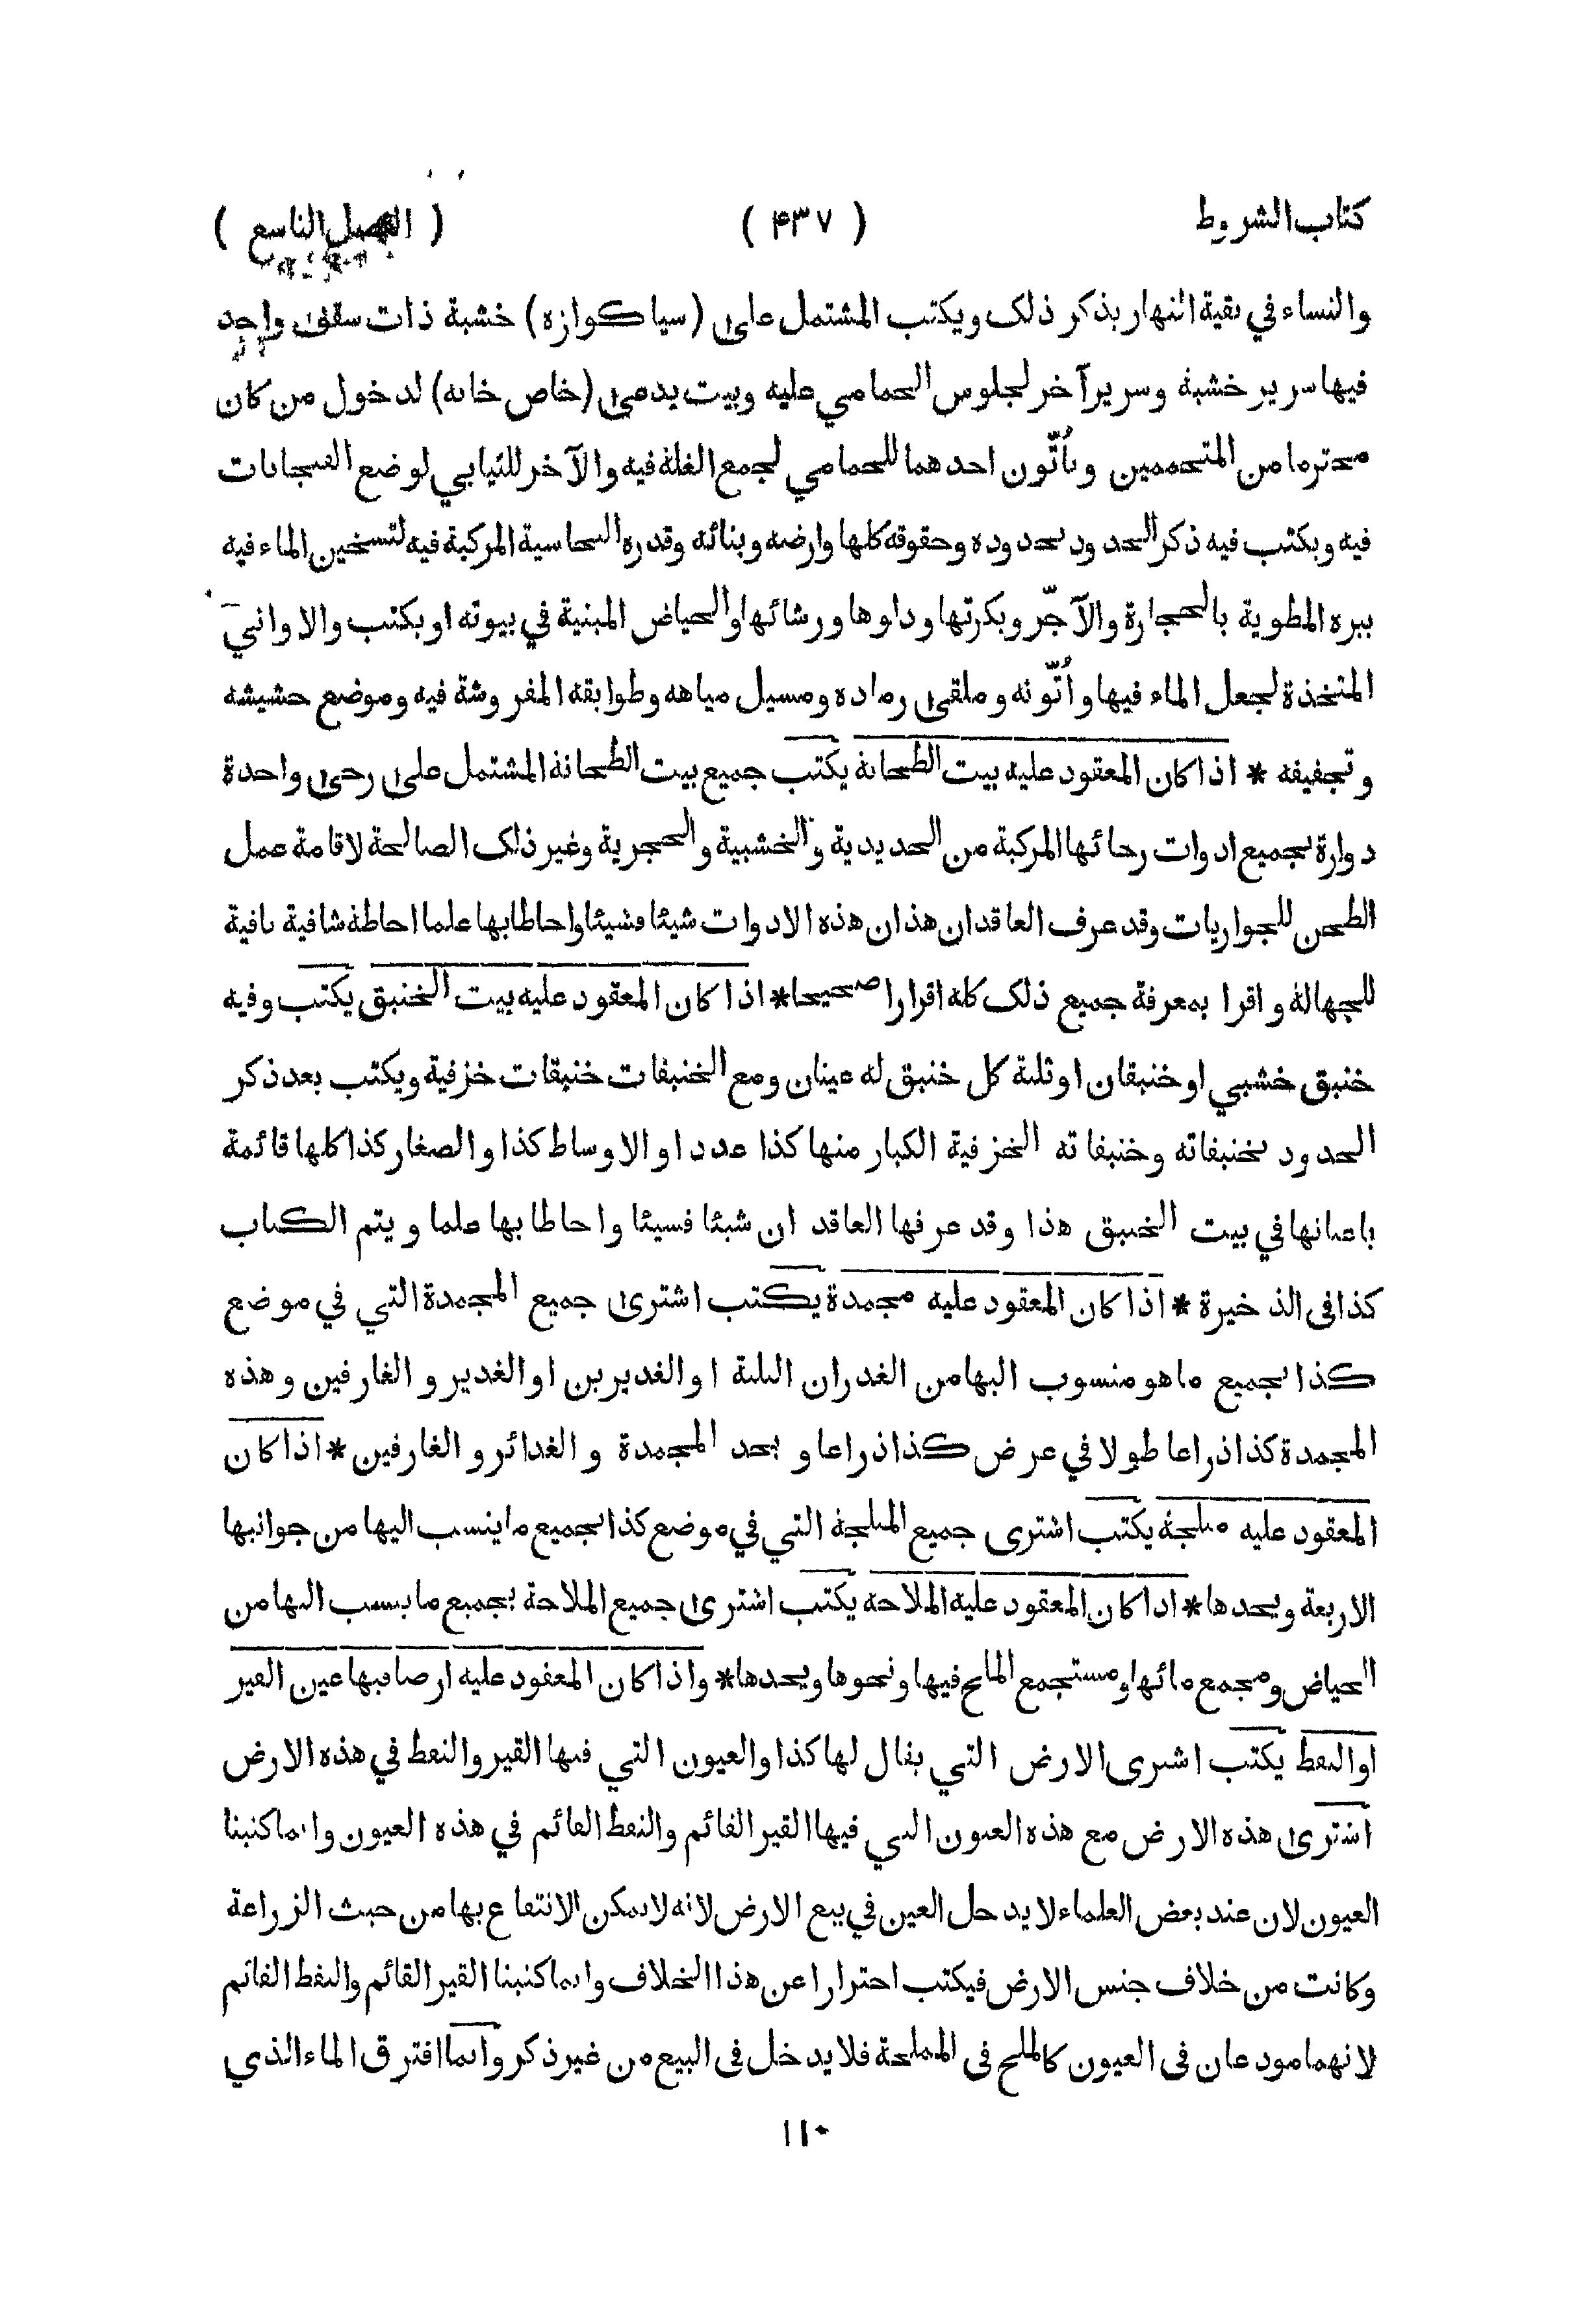 كتاب الشروط ( ۴۳۷ ) ( الفصل التاسع )
والنساء في بقية النهار بذكر ذلك ويكتب المشتمل على (سياكوازه) خشبة ذات سقف واحد
فيها سرير خشبة وسرير آخر لجلوس الحمامي عليه وبيت يدعى (خاص خانه) لدخول من كان
محترما من المتحممين وبأتّون احدهما للحمامي لجمع الغلة فيه والآخر للثيابي لوضع الفنجانات
فيه ويكتب فيه ذكر الحدود بحدوده وحقوقه كلها وارضه وبنائه وقدره النحاسية المركبة فيه لتسخين الماء فيه
ببره المطوية بالحجارة والآجّر وبكرتها ودلوها ورشائها والحياض المبنية في بيوته او يكتب والاواني
المتخذة لجعل الماء فيها وأتّونه وملقى رماده ومسيل مياهه وطوابقه المفروشة فيه وموضع حشيشه
وتجفيفه * اذا كان المعقود عليه بيت الطحانة يكتب جميع بيت الطحانة المشتمل على رحى واحدة
دوارة بجميع ادوات رحائها المركبة من الحديدية والخشبية والحجرية وغير ذلك الصالحة لاقامة عمل
الطحن للجواريات وقد عرف العاقدان هذان هذه الادوات شيئا فشيئا واحاطا بها علما احاطة شافية نافية
للجهالة واقرا بمعرفة جميع ذلك كله اقرارا صحيحا * اذا كان المعقود عليه بيت الخنبق يكتب وفيه
خنبق خشبي او خنبقان او ثلثة كل خنبق له عينان ومع الخنبقات خنبقات خزفية ويكتب بعد ذكر
الحدود بخنبقاته وخنبقاته الخزفية الكبار منها كذا عددا والاوساط كذا والصغار كذا كلها قائمة
باعيانها في بيت الخنبق هذا وقد عرفها العاقد ان شيئا فشيئا واحاطا بها علما ويتم الكتاب
كذا فى الذخيرة * اذا كان المعقود عليه مجمدة يكتب اشترى جميع المجمدة التي في موضع
كذا بجميع ما هو منسوب اليها من الغدران الثلثة او الغديرين او الغدير والغارفين وهذه
المجمدة كذا ذراعا طولا في عرض كذا ذراعا و بحد المجمدة والغدائر والغارفين * اذا كان
المعقود عليه مثلجة يكتب اشترى جميع المثلجة التي في موضع كذا بجميع ما ينسب اليها من جوانبها
الاربعة ويحدها * اذا كان المعقود عليه الملاحة يكتب اشترى جميع الملاحة بجميع ما ينسب اليها من
الحياض ومجمع مائها ومستجمع الملح فيها ونحوها ويحدها * واذا كان المعقود عليه ارضا فيها عين القير
او النفط يكتب اشترى الارض التي يقال لها كذا والعيون التي فيها القير والنفط في هذه الارض
اشترى هذه الارض مع هذه العيون التي فيها القير القائم والنفط القائم في هذه العيون وانما كتبنا
العيون لان عند بعض العلماء لا يدخل العين في بيع الارض لانه لا يمكن الانتفاع بها من حيث الزراعة
وكانت من خلاف جنس الارض فيكتب احترازا عن هذا الخلاف وانما كتبنا القير القائم والنفط القائم
لانهما مودعان فى العيون كالملح فى المملحة فلا يدخل فى البيع من غير ذكر وانما افترق الماء الذي
١١٠